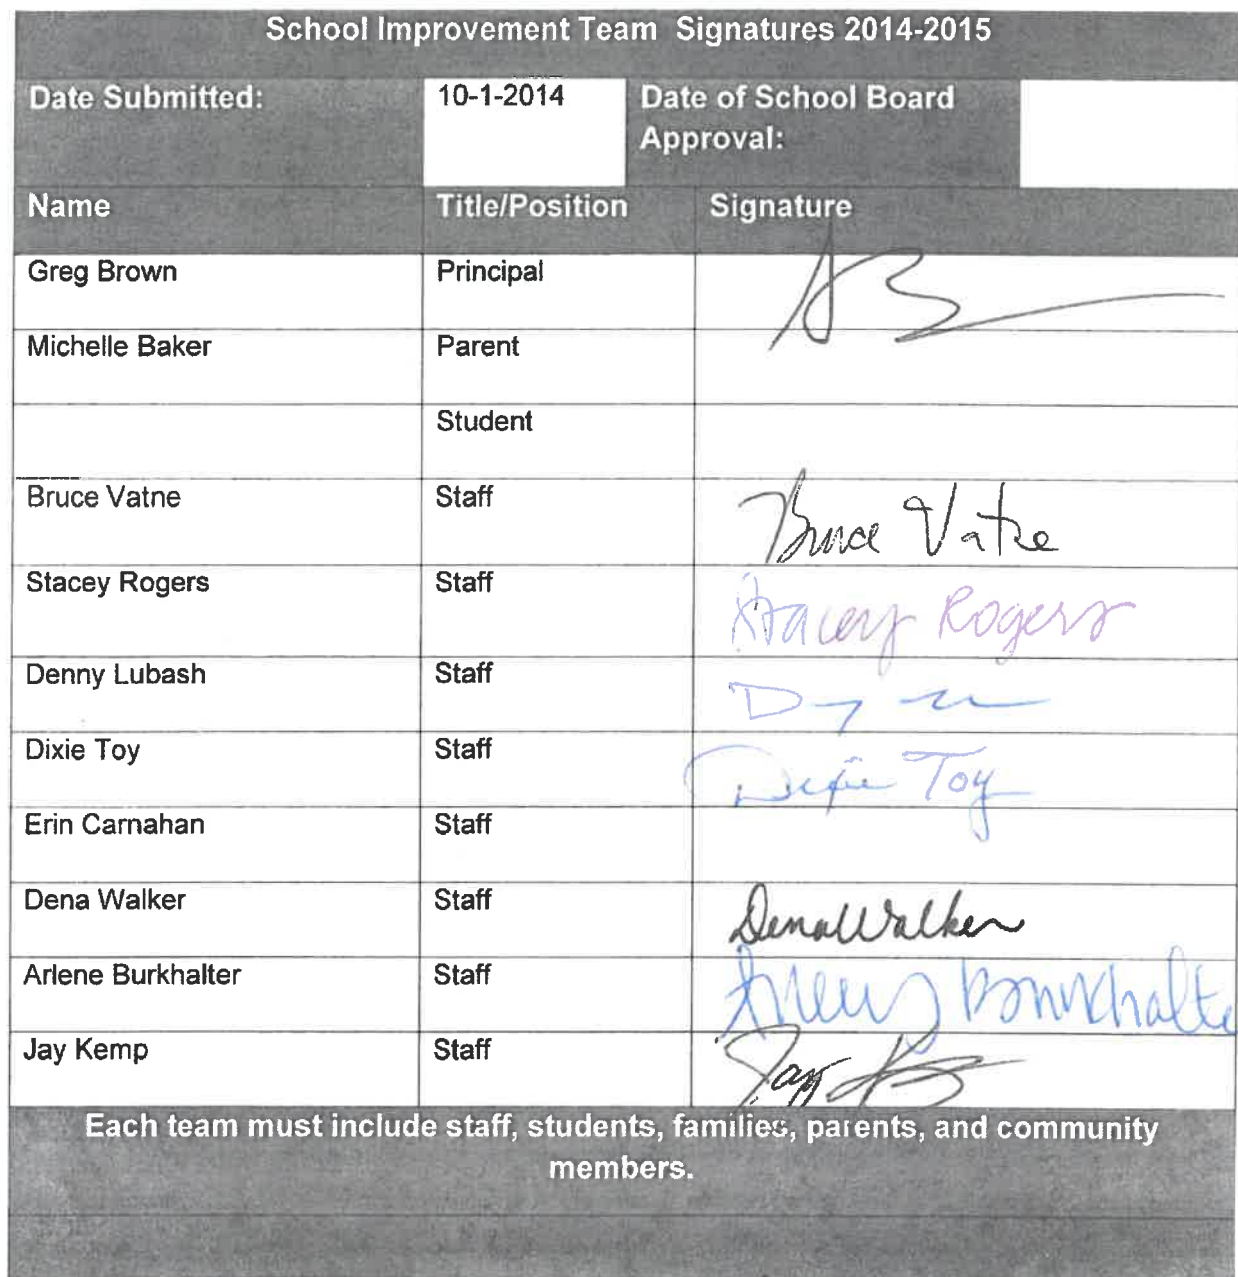 School Improvement Team Signatures 2014-2015
Date Submitted: 10-1-2014 Date of School Board
Approval:
Name Title/Position Signature
Greg Brown Principal
Michelle Baker Parent
Student
Bruce Vatne Staff Bruce Vatne
Stacey Rogers Staff Stacey Rogers
Denny Lubash Staff
Dixie Toy Staff Dixie Toy
Erin Carnahan Staff
Dena Walker Staff Dena Walker
Arlene Burkhalter Staff
Jay Kemp Staff Jay
Each team must include staff, students, families, parents, and community
members.